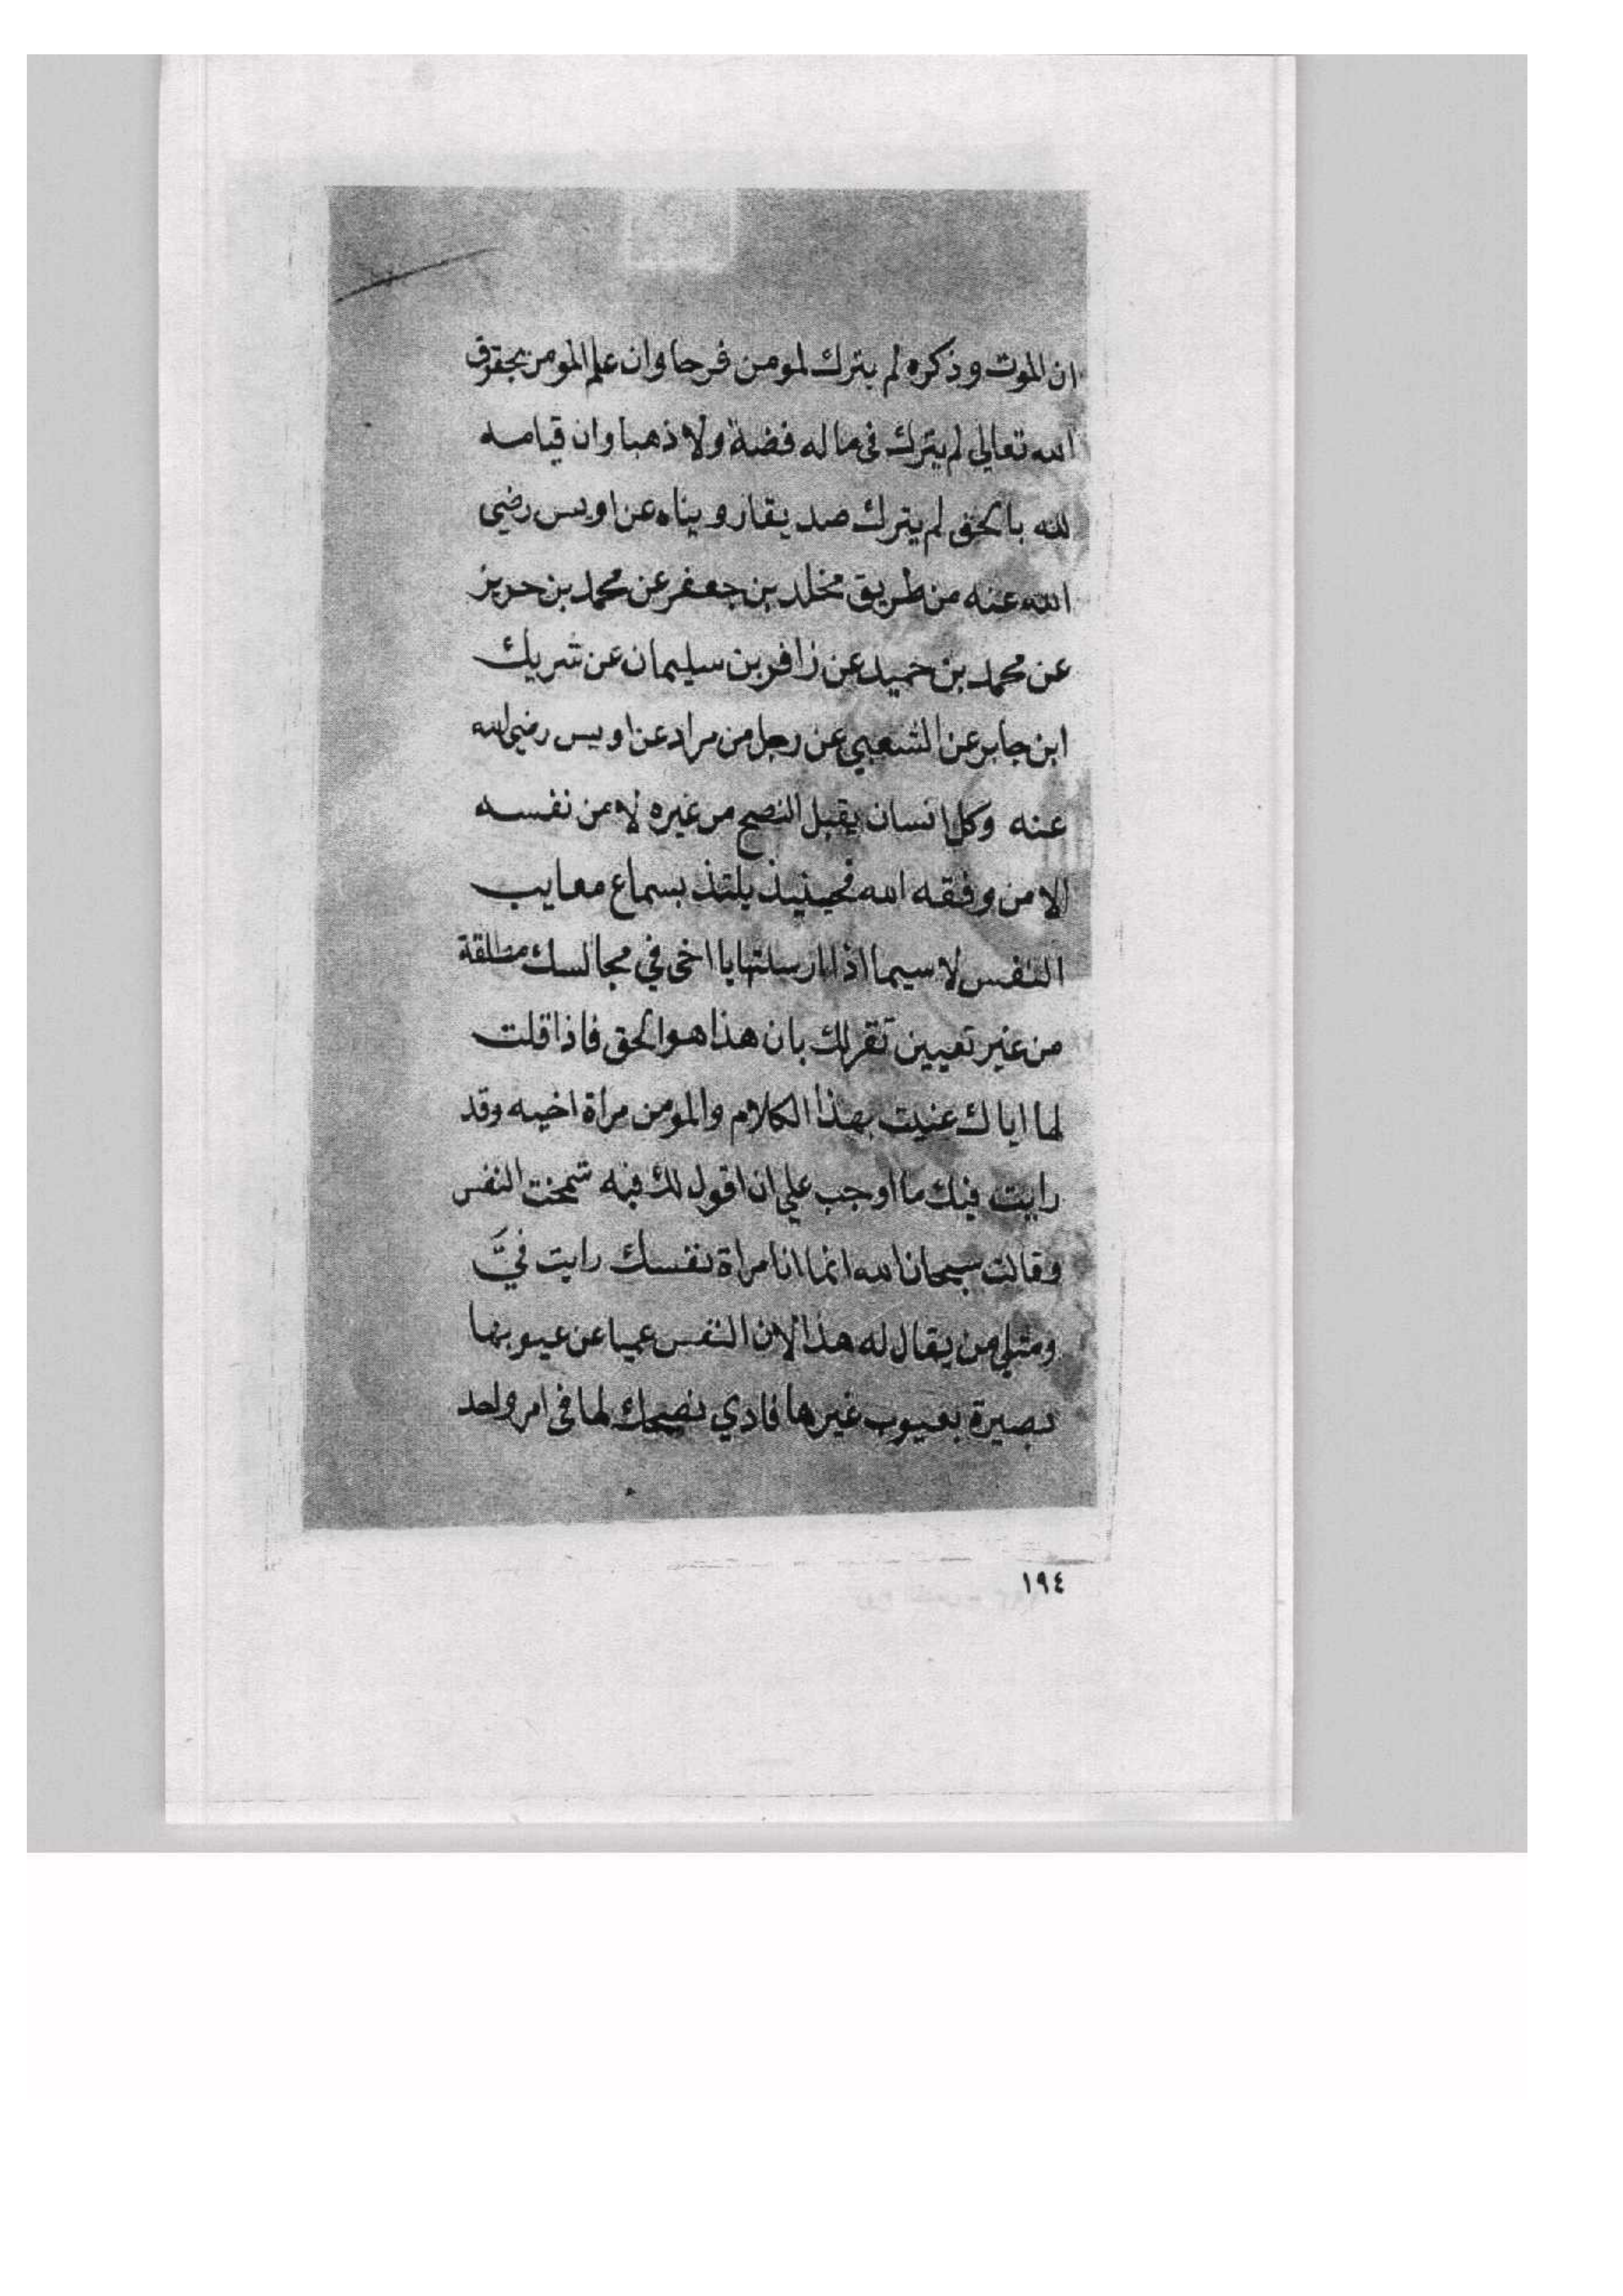 ان الموت وذكره لم يترك لمومن فرحا وان علم المومن بحقوق
الله تعالى لم يترك في ماله فضة ولا ذهبا وان قيامه
لله بالحق لم يترك صديقا رويناه عن اويس رضي
الله عنه من طريق مخلد بن جعفر عن محمد بن حريز
عن محمد بن حميد عن زافر بن سليمان عن شريك
ابن جابر عن الشعبي عن رجل من مراد عن اويس رضي الله
عنه وكل انسان يقبل النصح من غيره لا من نفسه
الا من وفقه الله فحينيذ يلتذ بسماع معايب
النفس لا سيما اذا ارسلتها يا اخي في مجالسك مطلقة
من غير تعيين تقر لك بان هذا هو الحق فاذا قلت
لها اياك عنيت بهذا الكلام والمومن مراة اخيه وقد
رايت فيك ما اوجب علي ان اقول لك فيه شمخت النفس
وقالت سبحان الله انما انا مراة نفسك رايت فيَّ
ومثلي من يقال له هذا لان النفس عميا عن عيوبها
بصيرة بعيوب غيرها فادي نصحك لها في امر واحد
١٩٤